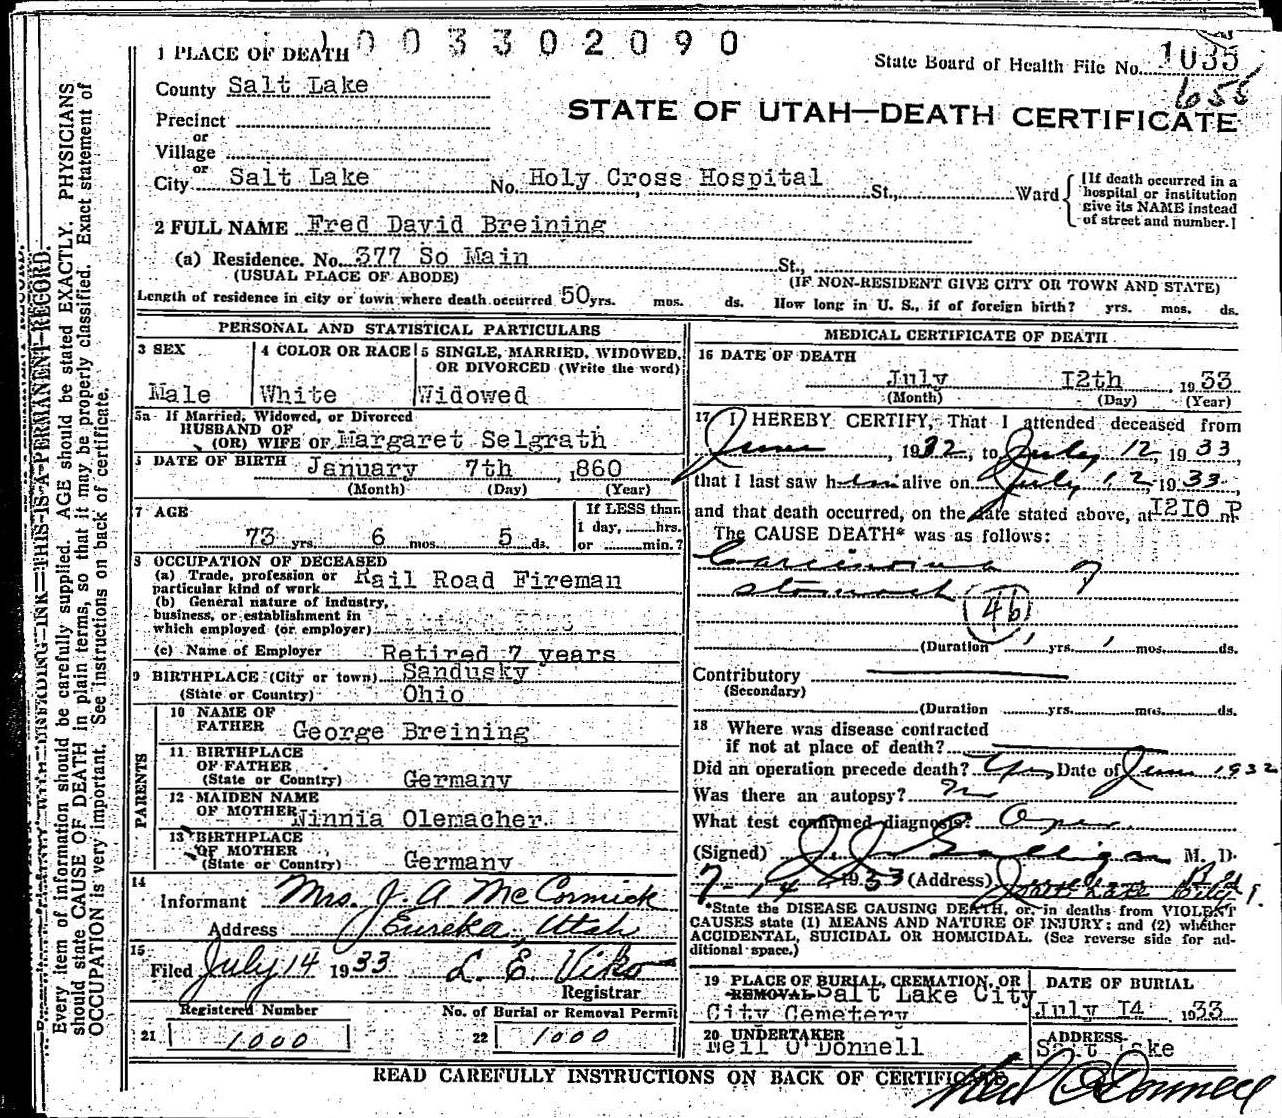 1 PLACE OF DEATH 1003302090
State Board of Health File No. 1035
655
County Salt Lake
STATE OF UTAH—DEATH CERTIFICATE
Precinct
or
Village
or
City Salt Lake No. Holy Cross Hospital St., Ward
[If death occurred in a hospital or institution give its NAME instead of street and number.]
2 FULL NAME Fred David Breining
(a) Residence. No. 377 So Main St.,
(USUAL PLACE OF ABODE) (IF NON-RESIDENT GIVE CITY OR TOWN AND STATE)
Length of residence in city or town where death occurred 50 yrs. mos. ds. How long in U. S., if of foreign birth? yrs. mos. ds.
PERSONAL AND STATISTICAL PARTICULARS
3 SEX
Male
4 COLOR OR RACE
White
5 SINGLE, MARRIED, WIDOWED, OR DIVORCED (Write the word)
Widowed
5a If Married, Widowed, or Divorced
HUSBAND OF
(OR) WIFE OF Margaret Selgrath
DATE OF BIRTH January 7th ,860
(Month) (Day) (Year)
7 AGE
73 yrs. 6 mos. 5 ds.
If LESS than
1 day, hrs.
or min.?
8 OCCUPATION OF DECEASED
(a) Trade, profession or particular kind of work Rail Road Fireman
(b) General nature of industry,
business, or establishment in
which employed (or employer)
(c) Name of Employer Retired 7 years
9 BIRTHPLACE (City or town) Sandusky
(State or Country) Ohio
PARENTS
10 NAME OF
FATHER George Breining
11 BIRTHPLACE
OF FATHER
(State or Country) Germany
12 MAIDEN NAME
OF MOTHER Winnia Olemacher
13 BIRTHPLACE
OF MOTHER
(State or Country) Germany
14
Informant Mrs. J. A. McCormick
Address Eureka, Utah
15
Filed July 14 1933 L. E. Viko
Registrar
Registered Number No. of Burial or Removal Permit
21 1000 22 1000
MEDICAL CERTIFICATE OF DEATH
16 DATE OF DEATH
July 12th 1933
(Month) (Day) (Year)
17 I HEREBY CERTIFY, That I attended deceased from
June, 1932, to July 12, 1933,
that I last saw him alive on July 12, 1933,
and that death occurred, on the date stated above, at 1210 P m
The CAUSE DEATH* was as follows:
Carcinoma of
stomach
46
(Duration 1 yrs. 1 mos. ds.
Contributory
(Secondary)
(Duration yrs. mos. ds.
18 Where was disease contracted
if not at place of death?
Did an operation precede death? Yes Date of June 1932
Was there an autopsy? No
What test confirmed diagnosis? Oper.
(Signed) J. J. Galligan M. D.
7-14 1933 (Address)
*State the DISEASE CAUSING DEATH, or, in deaths from VIOLENT
CAUSES state (1) MEANS AND NATURE OF INJURY; and (2) whether
ACCIDENTAL, SUICIDAL OR HOMICIDAL. (See reverse side for ad-
ditional space.)
19 PLACE OF BURIAL, CREMATION, OR
REMOVAL Salt Lake City
City Cemetery
DATE OF BURIAL
July 14 1933
20 UNDERTAKER
Neil O'Donnell
ADDRESS
Salt Lake
Neil O'Donnell
READ CAREFULLY INSTRUCTIONS ON BACK OF CERTIFICATE
WITH UNFADING INK—THIS IS A PERMANENT RECORD.
Every item of information should be carefully supplied. AGE should be stated EXACTLY. PHYSICIANS
should state CAUSE OF DEATH in plain terms, so that it may be properly classified. Exact statement of
OCCUPATION is very important. See instructions on back of certificate.